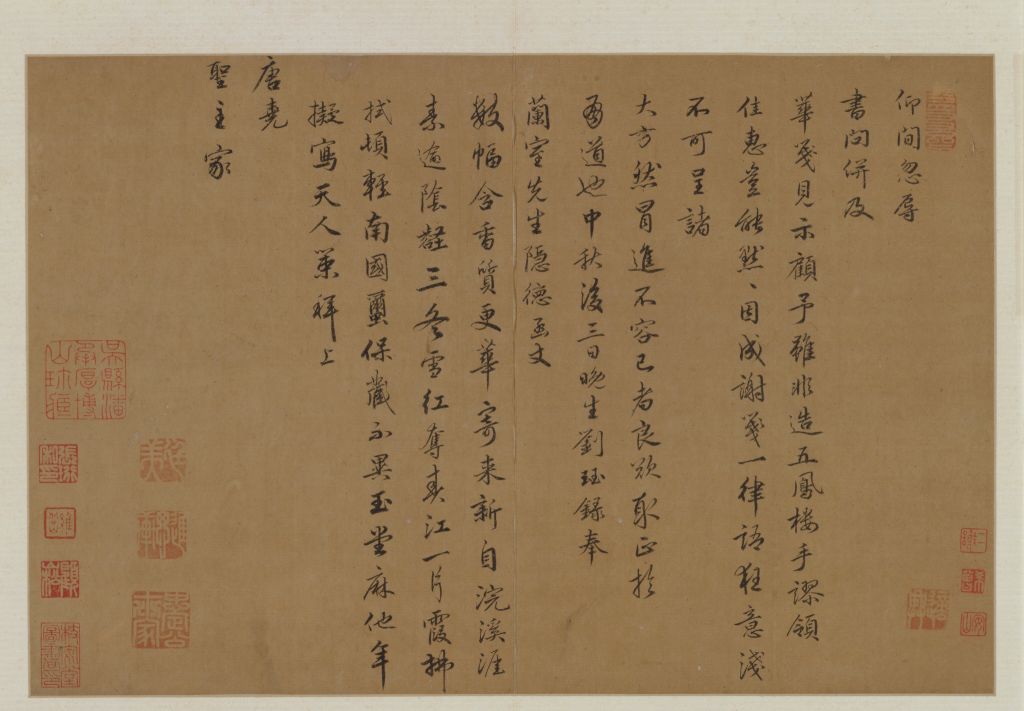 仰間忽辱
書問併及
華箋見示顧予雖非造五鳳樓手謬領
佳惠豈能默〻因成謝箋一律語狂意淺
不可呈諸
大方然冒進不容已者良欲取正於
有道也中秋後三日晚生劉珏錄奉
蘭室先生隱德函丈
數幅含香質更華寄来新自浣溪涯
素逾陰壑三冬雪紅奪春江一片霞拂
拭頓輕南國繭保藏不異玉堂麻他年
擬寫天人策拜上
唐堯
聖主家